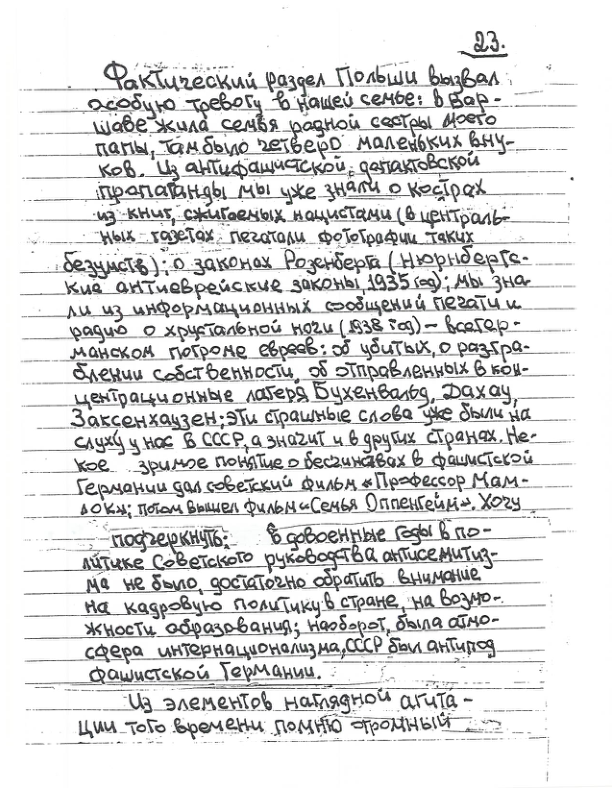 23.
Фактический раздел Польши вызвал
особую тревогу в нашей семье: в Вар-
шаве жила семья родной сестры моего
папы, там было четверо маленьких вну-
ков. Из антифашистской, допактовской
пропаганды мы уже знали о кострах
из книг, сжигаемых нацистами (в централь-
ных газетах печатали фотографии таких
безумств); о законах Розенберга (Нюрнбергс-
кие антиеврейские законы, 1935 год); мы зна-
ли из информационных сообщений печати и
радио о хрустальной ночи (1938 год) – всегер-
манском погроме евреев: об убитых, о разгра-
блении собственности, об отправленных в кон-
центрационные лагеря Бухенвальд, Дахау,
Заксенхаузен; эти страшные слова уже были на
слуху у нас в СССР, а значит и в других странах. Не-
кое зримое понятие о бесчинствах в фашистской
Германии дал советский фильм «Профессор Мам-
лок»; потом вышел фильм «Семья Оппенгейм». Хочу
подчеркнуть: в довоенные годы в по-
литике Советского руководства антисемитиз-
ма не было, достаточно обратить внимание
на кадровую политику в стране, на возмо-
жности образования; наоборот, была атмо-
сфера интернационализма, СССР был антипод
фашистской Германии.
Из элементов наглядной агита-
ции того времени помню огромный